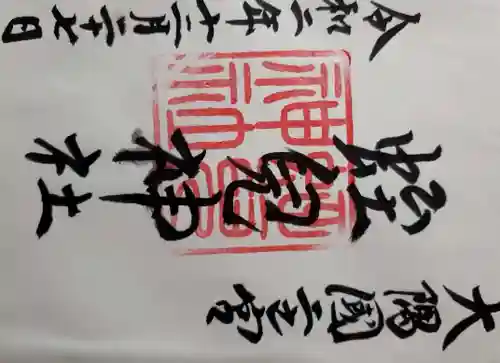 大隅國二之宮
蛭兒神社
令和二年十二月二十七日